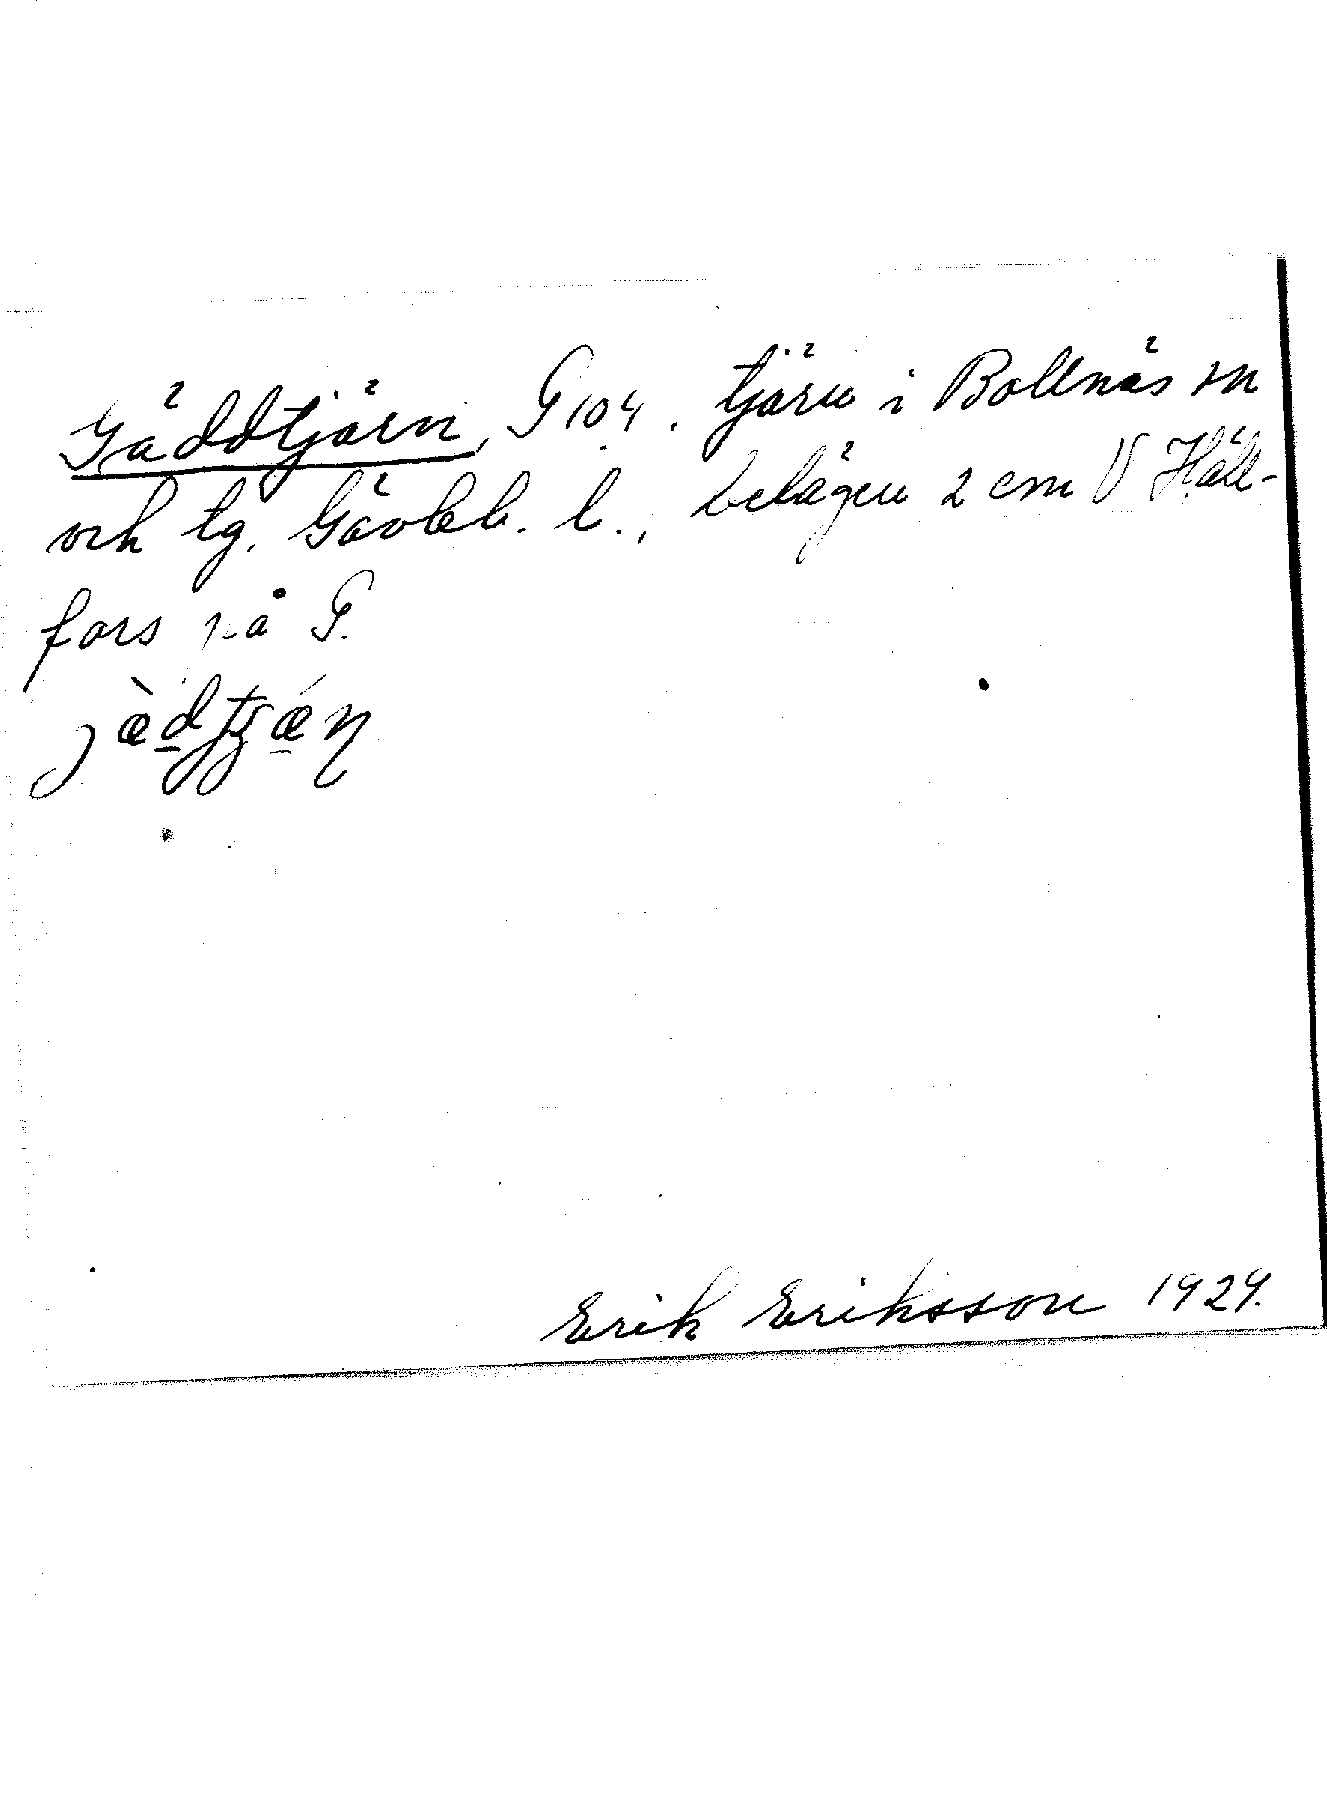 Gäddtjärn, G 104. tjärn i Bollnäs sn
och tg. Gävleb. l., belägen 2 cm V Häll-
fors på G.
Erik Eriksson 1929.